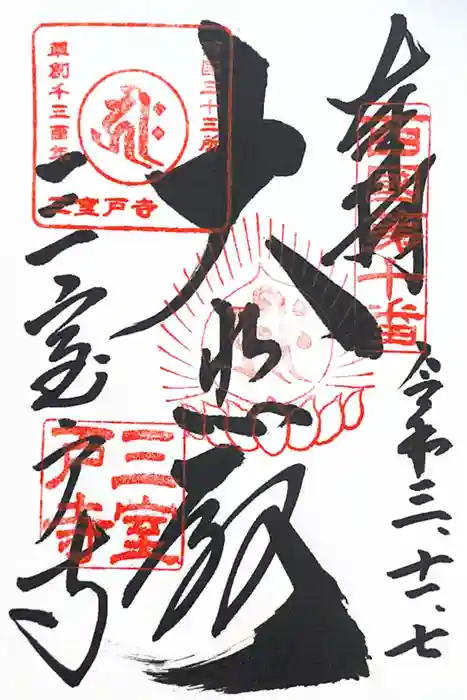 奉拝
西國第十番
令和三、十一、七
大悲殿
西国三十三所
草創千三百年
三室戸寺
三室戸寺
三室
戸寺